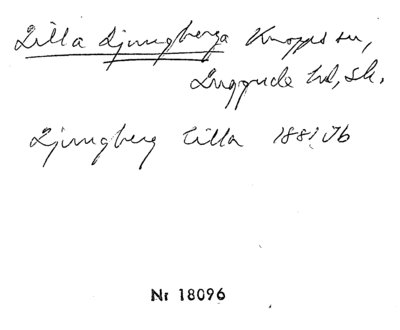 Lilla Ljungberga Knopps sn,
Luggude hd, Sk.
Ljungberg Lilla 1881 Jb
Nr 18096